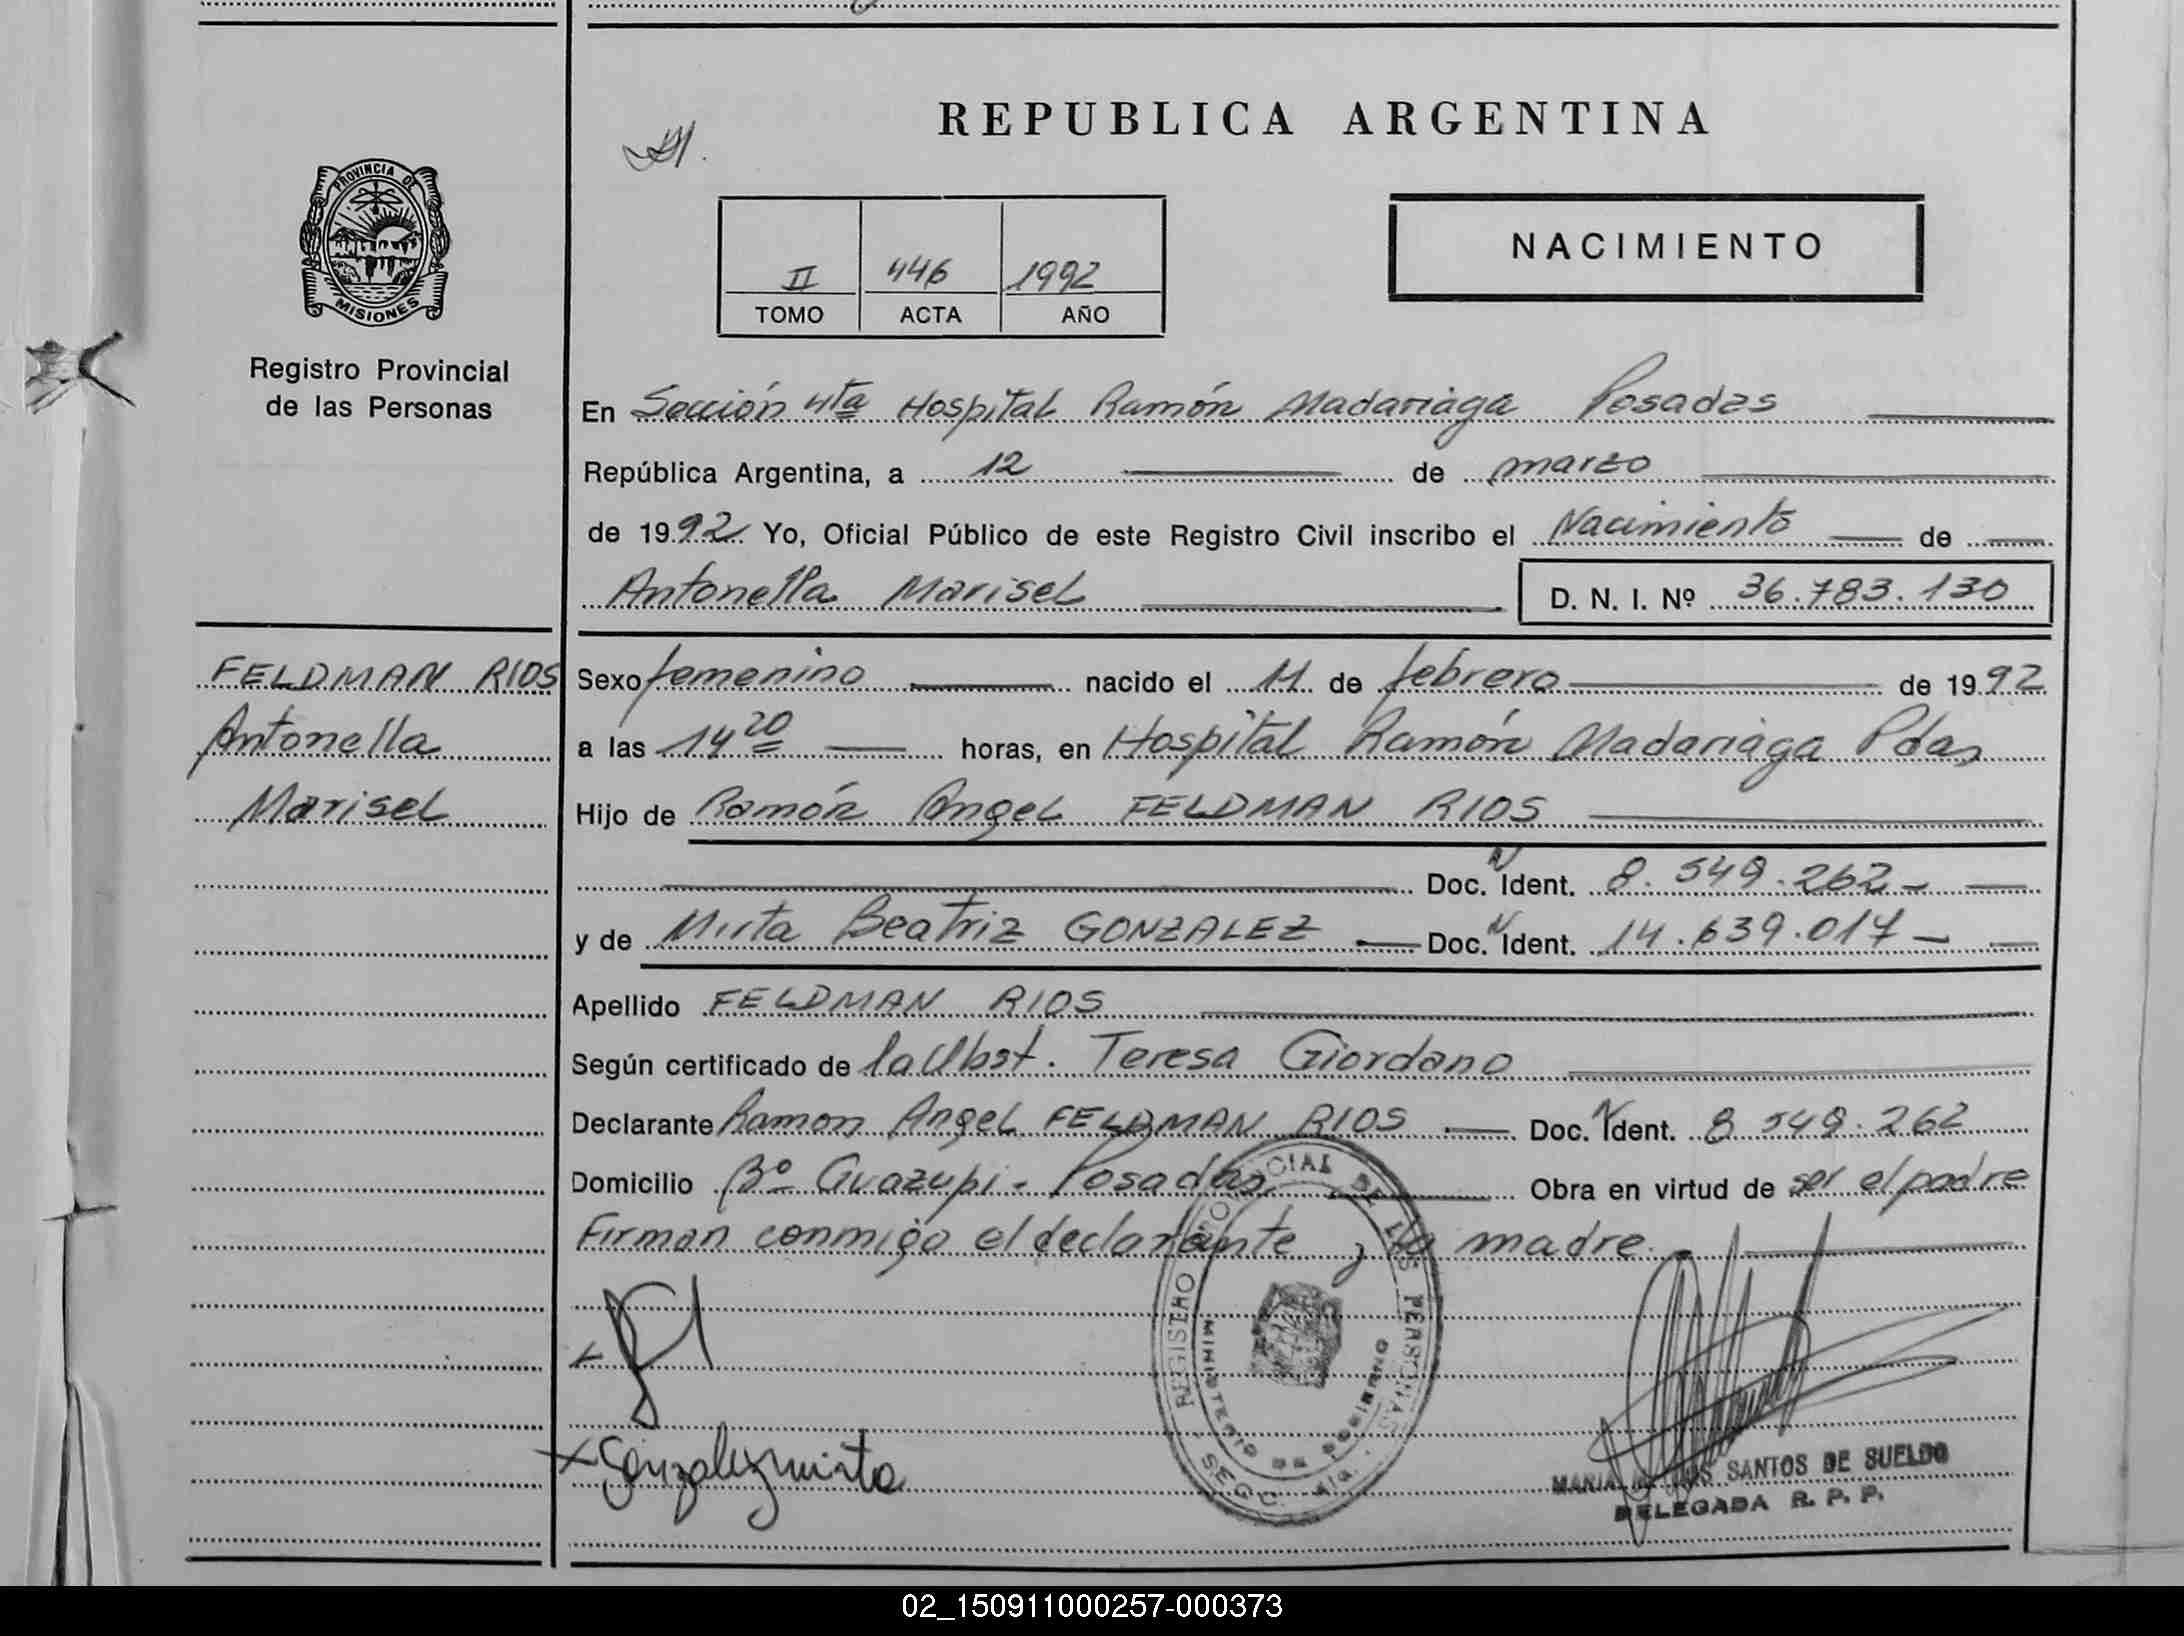 REPUBLICA ARGENTINA
PROVINCIA DE
MISIONES
Registro Provincial
de las Personas
NACIMIENTO
II 446 1992
TOMO ACTA AÑO
En Sección 4ta Hospital Ramón Madariaga Posadas
República Argentina, a 12 de marzo
de 1992 Yo, Oficial Público de este Registro Civil inscribo el Nacimiento de
Antonella Marisel D. N. I. Nº 36.783.130
FELDMAN RIOS
Antonella
Marisel
Sexo femenino nacido el 11 de febrero de 1992
a las 14 20 horas, en Hospital Ramón Madariaga Pdas
Hijo de Ramón Angel FELDMAN RIOS
Doc. N Ident. 8.549.262
y de Mirta Beatriz GONZALEZ Doc. N Ident. 14.639.017
Apellido FELDMAN RIOS
Según certificado de la Obst. Teresa Giordano
Declarante Ramon Angel FELDMAN RIOS Doc. N Ident. 8 549.262
Domicilio Bº Guazupi - Posadas Obra en virtud de ser el padre
Firman conmigo el declarante y la madre.
REGISTRO PROVINCIAL DE LAS PERSONAS
MINISTERIO DE GOBIERNO
SECC. 4ta.
x Gonzalez mirta
MARIA SANTOS DE SUELDO
DELEGADA R. P. P.
02_150911000257-000373